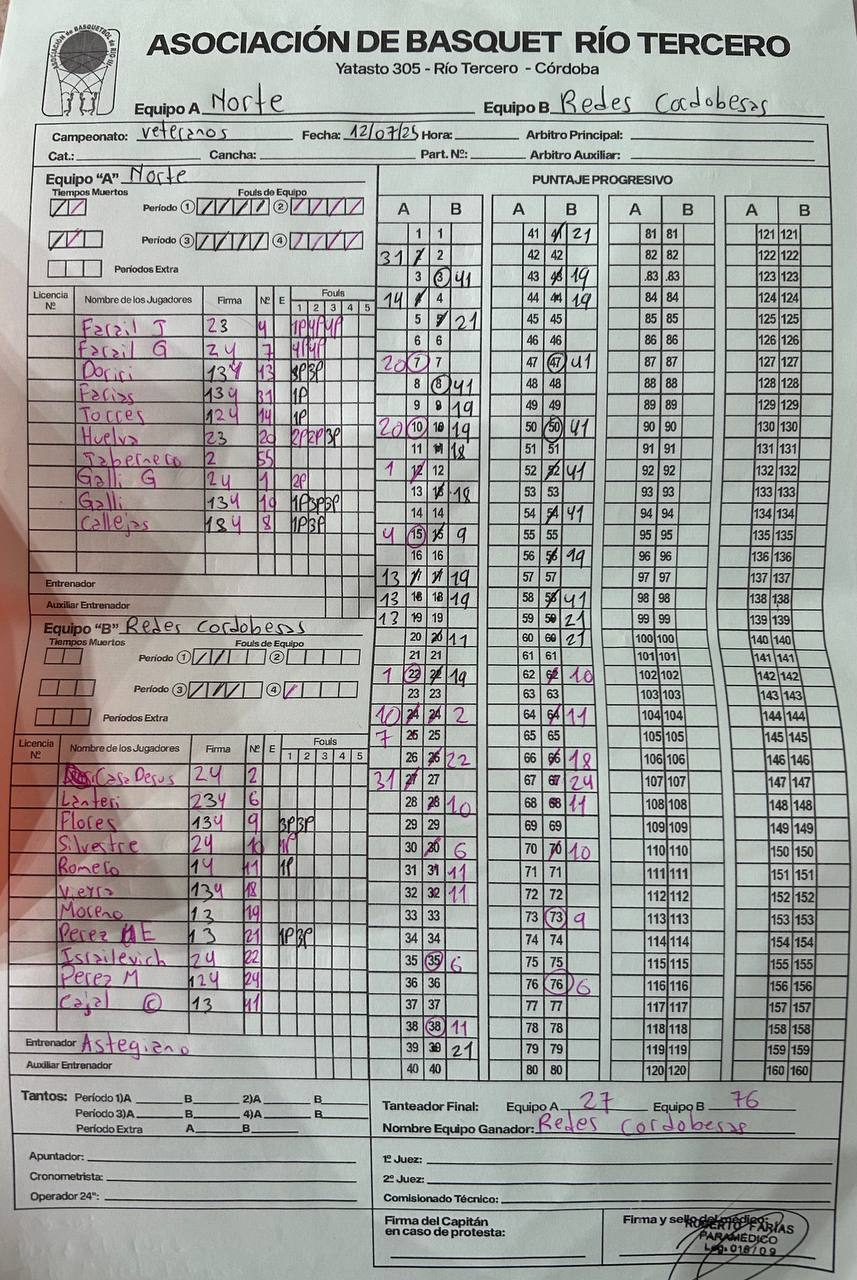 ASOCIACIÓN de BASQUETBOL de RÍO III
ASOCIACIÓN DE BASQUET RÍO TERCERO
Yatasto 305 - Río Tercero - Córdoba
Equipo A Norte Equipo B Redes Cordobesas
Campeonato: veteranos Fecha: 12/07/25 Hora: Arbitro Principal:
Cat.: Cancha: Part. Nº: Arbitro Auxiliar:
Equipo "A" Norte
Tiempos Muertos Fouls de Equipo
Período 1 2
Período 3 4
Períodos Extra
Licencia Nº Nombre de los Jugadores Firma Nº E Fouls
1 2 3 4 5
Farail J 23 4 1P 4P 4P
Farail G 24 7 4P 4P
Dorici 134 13 3P 3P
Farias 134 31 1P
Torres 124 14 1P
Huelva 23 20 2P 2P 3P
Tabernero 2 55
Galli G 24 1 2P
Galli 134 10 1P 3P 3P
Callejas 184 8 1P 3P
Entrenador
Auxiliar Entrenador
Equipo "B" Redes Cordobesas
Tiempos Muertos Fouls de Equipo
Período 1 2
Período 3 4
Períodos Extra
Licencia Nº Nombre de los Jugadores Firma Nº E Fouls
1 2 3 4 5
Casa Desus 24 2
Lanteri 234 6
Flores 134 9 3P 3P
Silvestre 24 10 1P
Romero 14 11 1P
Vieyra 134 18
Moreno 13 19
Perez E 13 21 1P 3P
Israilevich 24 22
Perez M 124 24
Cajal C 13 41
Entrenador Astegiano
Auxiliar Entrenador
PUNTAJE PROGRESIVO
A B A B A B A B
1 1 41 41 21 81 81 121 121
31 2 2 42 42 82 82 122 122
3 3 41 43 43 19 .83 83 123 123
14 4 4 44 44 19 84 84 124 124
5 5 21 45 45 85 85 125 125
6 6 46 46 86 86 126 126
20 7 7 47 47 41 87 87 127 127
8 8 41 48 48 88 88 128 128
9 9 19 49 49 89 89 129 129
20 10 10 19 50 50 41 90 90 130 130
11 11 18 51 51 91 91 131 131
1 12 12 52 52 41 92 92 132 132
13 13 18 53 53 93 93 133 133
14 14 54 54 41 94 94 134 134
4 15 15 9 55 55 95 95 135 135
16 16 56 56 19 96 96 136 136
13 17 17 19 57 57 97 97 137 137
13 18 18 19 58 58 41 98 98 138 138
13 19 19 59 59 21 99 99 139 139
20 20 11 60 60 21 100 100 140 140
21 21 61 61 101 101 141 141
1 22 22 19 62 62 10 102 102 142 142
23 23 63 63 103 103 143 143
10 24 24 2 64 64 11 104 104 144 144
7 25 25 65 65 105 105 145 145
26 26 22 66 66 18 106 106 146 146
31 27 27 67 67 24 107 107 147 147
28 28 10 68 68 11 108 108 148 148
29 29 69 69 109 109 149 149
30 30 6 70 70 10 110 110 150 150
31 31 11 71 71 111 111 151 151
32 32 11 72 72 112 112 152 152
33 33 73 73 9 113 113 153 153
34 34 74 74 114 114 154 154
35 35 6 75 75 115 115 155 155
36 36 76 76 6 116 116 156 156
37 37 77 77 117 117 157 157
38 38 11 78 78 118 118 158 158
39 39 21 79 79 119 119 159 159
40 40 80 80 120 120 160 160
Tantos: Período 1)A B 2)A B
Período 3)A B 4)A B
Período Extra A B
Tanteador Final: Equipo A 27 Equipo B 76
Nombre Equipo Ganador: Redes Cordobesas
Apuntador:
Cronometrista:
Operador 24":
1º Juez:
2º Juez:
Comisionado Técnico:
Firma del Capitán
en caso de protesta:
Firma y sello del médico:
ROBERTO FARÍAS
PARAMEDICO
Leg. 016/09